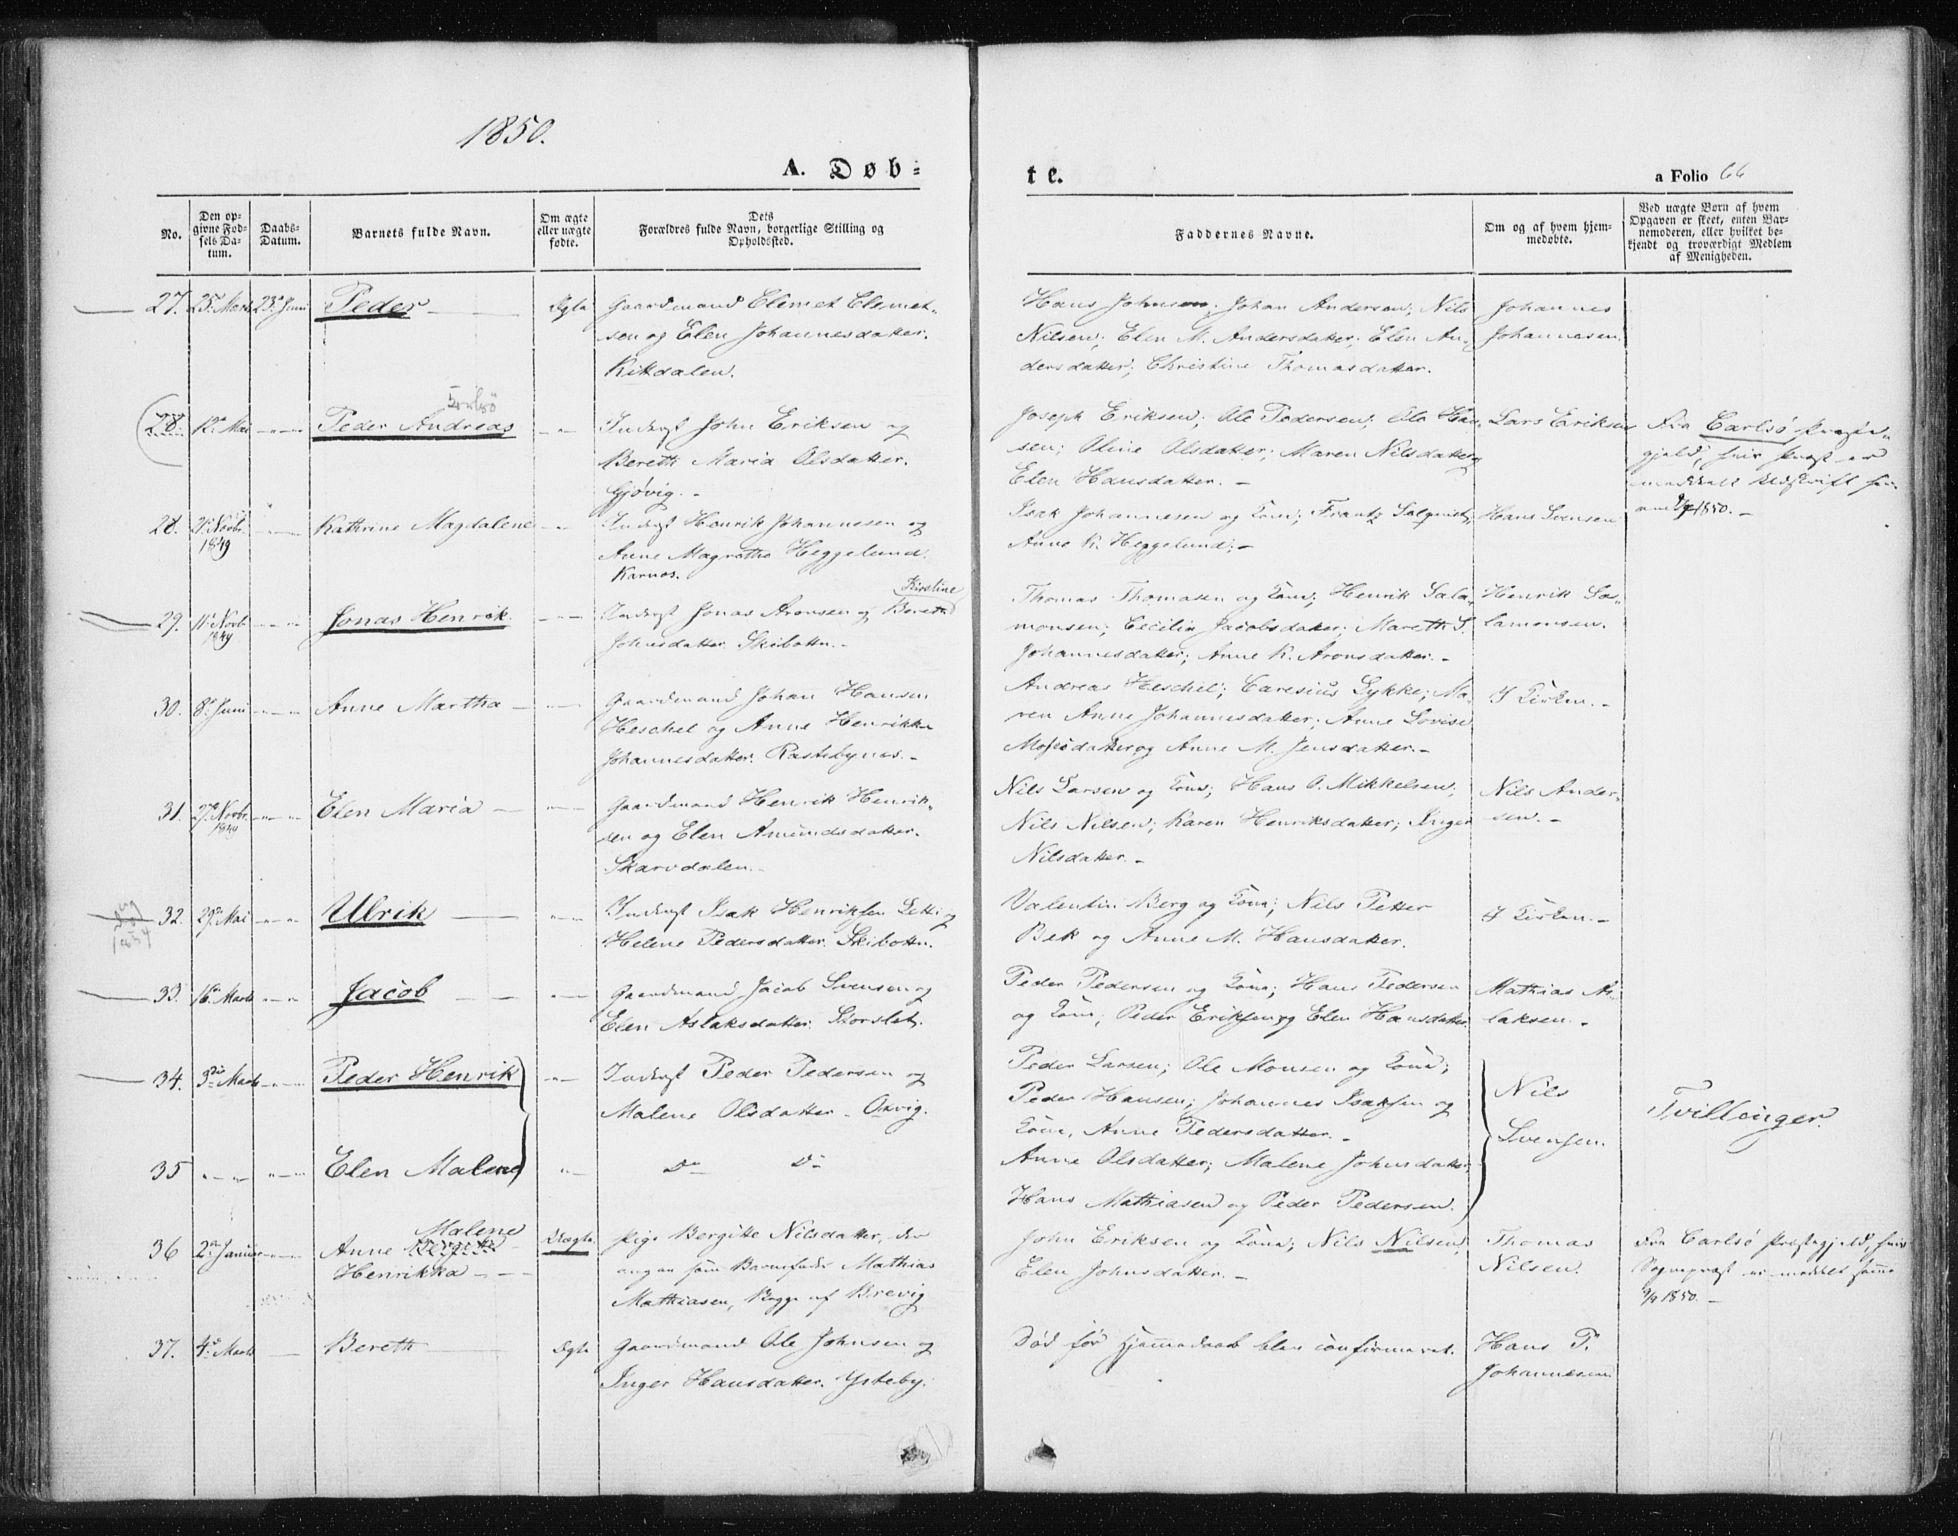 1850.
A. Døb-
te.
a Folio 66
No.
Den op-
givne Fød-
sels Da-
tum.
Daabs-
Datum.
Barnets fulde Navn.
Om ægte
eller uægte
fødte.
Dets
Forældres fulde Navn, borgerlige Stilling og
Opholdssted.
Faddernes Navne.
Om og af hvem hjem-
medøbte.
Ved uægte Born af hvem
Opgaven er skeet, enten Bar-
nemoderen, eller hvilket be-
kjendt og troværdigt Medlem
af Menigheden.
27. 25. Marts 23. Juni Peder Ægte Gaardmand Clemet Clemet-
sen og Elen Johannesdatter.
Kitdalen.
Hans Johnsen; Johan Andersen; Nils
Nilsen; Elen M. Andersdatter; Elen An-
dersdatter; Christine Thomasdatter.
Johannes
Johannesen.
28. 12. Mai Peder Andreas Inderst John Eriksen og
Bereth Maria Olsdatter.
Gjøvig.
Joseph Eriksen; Ole Pedersen; Ole Han-
sen; Oline Olsdatter; Maren Nilsdatter og
Elen Hansdatter. -
Lars Eriksen
Fra Carlsø Præste-
gjeld, hvis Præst er
meddelt Udskrift
1850. -
28. 21. Novbr. 1849 Kathrine Magdalene Inderst Henrik Johannesen og
Anne Magrethe Heggelund.
Karnes.
Isak Johannesen og Kone; Frantz Salqvist;
Anne K. Heggelund; -
Hans Svensen
29. 11. Novb. 1849 Jonas Henrik Inderst Jonas Aronsen og Bereth
Kirstine
Johnsdatter. Skibotn. -
Thomas Thomasen og Kone; Henrik Salo-
monsen; Cecilia Jacobsdatter; Mareth S.
Johannesdatter; Anne K. Aronsdatter. -
Henrik Sa-
lamonsen.
30. 8. Juni Anne Martha Gaardmand Johan Hansen
Heschel og Anne Henrikke
Johannesdatter. Rastebynes. -
Andreas Heschel; Caresius Lykke; Ma-
ren Anne Johannesdatter; Anne Lovise
Mosesdatter og Anne M. Jensdatter. -
I Kirken. -
31. 27. Novbr. 1849 Elen Maria Gaardmand Henrik Henrik-
sen og Elen Amundsdatter.
Skarvdalen. -
Nils Larsen og Kone; Hans O. Mikkelsen;
Nils Nilsen; Karen Henriksdatter; Inger
Nilsdatter. -
Nils Ander-
sen. -
32. 29. Mai Ulrik Inderst Isak Henriksen Letti og
Helene Pedersdatter. Skibotn.
Valentin Berg og Kone; Nils Petter
Bek og Anne M. Hansdatter.
I Kirken. -
33. 16. Marts Jacob Gaardmand Jacob Svensen og
Elen Aslaksdatter. Storslet.
Peder Pedersen og Kone; Hans Pedersen
og Kone; Peder Eriksen og Elen Hansdatter.
Mathias As-
laksen. -
34. 3die Marts Peder Henrik Inderst Peder Pedersen og
Malene Olsdatter. Oxvig.
Peder Larsen; Ole Monsen og Kone;
Peder Hansen; Johannes Isaksen og
Kone, Anne Pedersdatter. -
Nils
Svensen.
Tvillinger.
35 Elen Malene Do Do
Anne Olsdatter; Malene Johnsdatter;
Hans Mathiasen og Peder Pedersen.
36 2. Januar Anne Malene
Henrikka Uægte Pige Bergitte Nilsdatter, der
angav som Barnefader Mathias
Mathiasen, Begge af Brevig
John Eriksen og Kone; Nils Nilsen;
Elen Johnsdatter. -
Thomas
Nilsen.
Fra Carlsø Præstegjeld, hvis
Sognepræst er meddelt samme
1850. -
37. 4. Marts Bereth Ægte Gaardmand Ole Johnsen og
Inger Hansdatter. Ysteby.
Død før Hjemmedaab blev confirmeret.
Hans P.
Johannesen